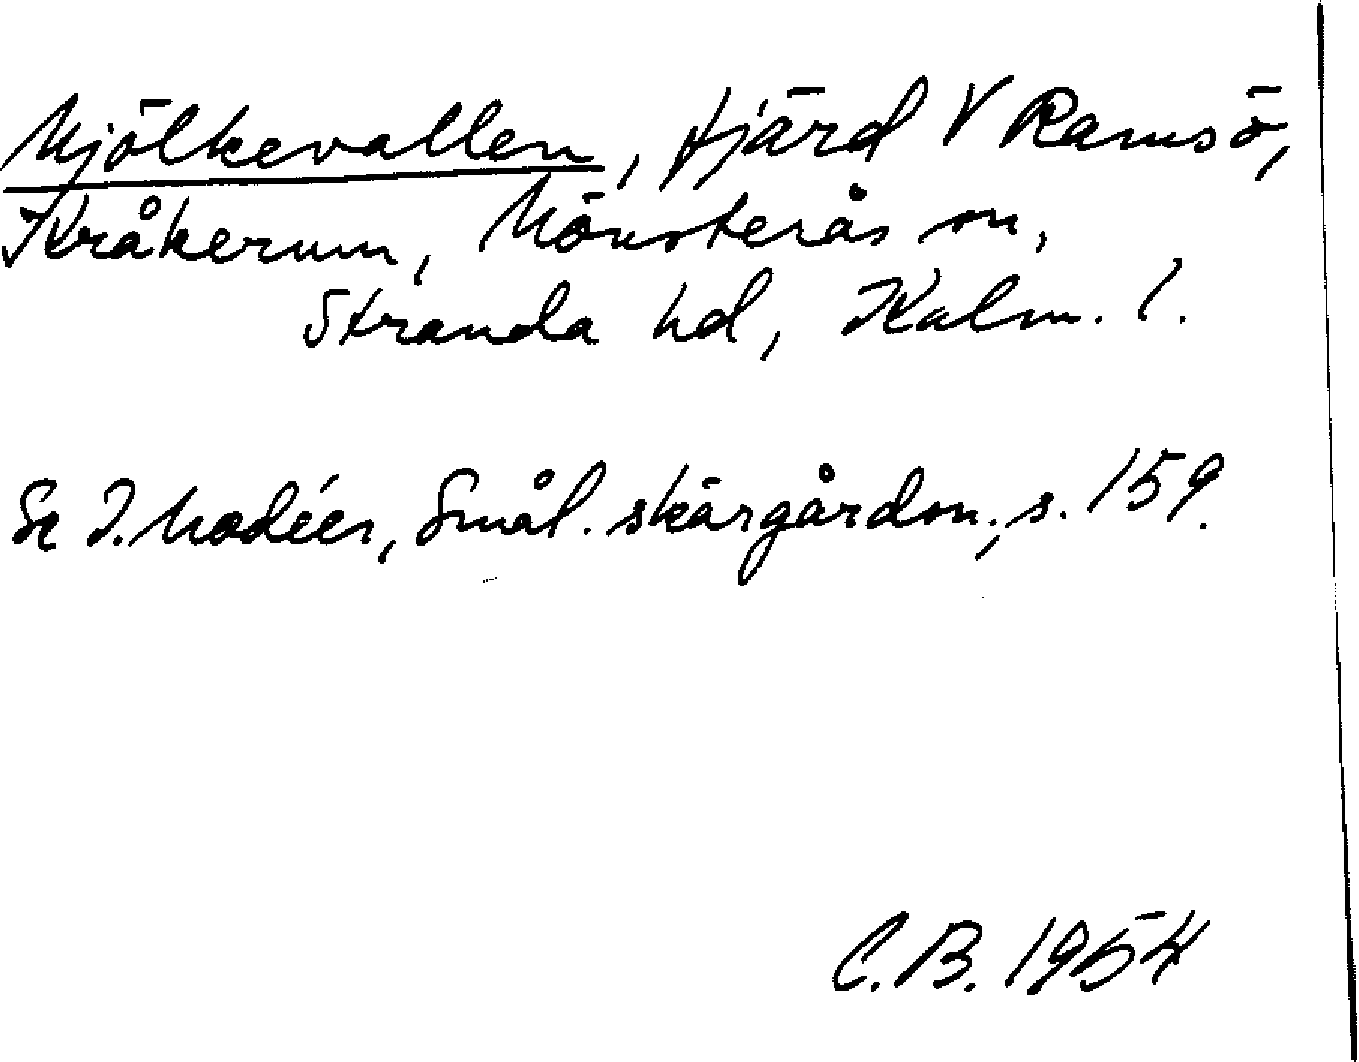 Mjölkevallen, fjärd V Ramsö,
Kråkerum, Mönsterås sn,
Stranda hd, Kalm. l.
Se I. Modéer, Smål. skärgårdsn., s. 159.
C.B. 1954